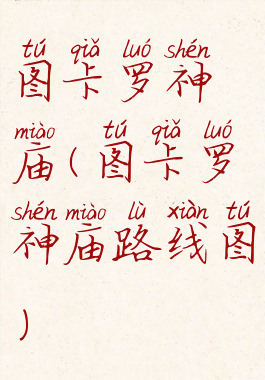 tú qiǎ luó shén
图卡罗神
miào tú qiǎ luó
庙(图卡罗
shén miào lù xiàn tú
神庙路线图
)